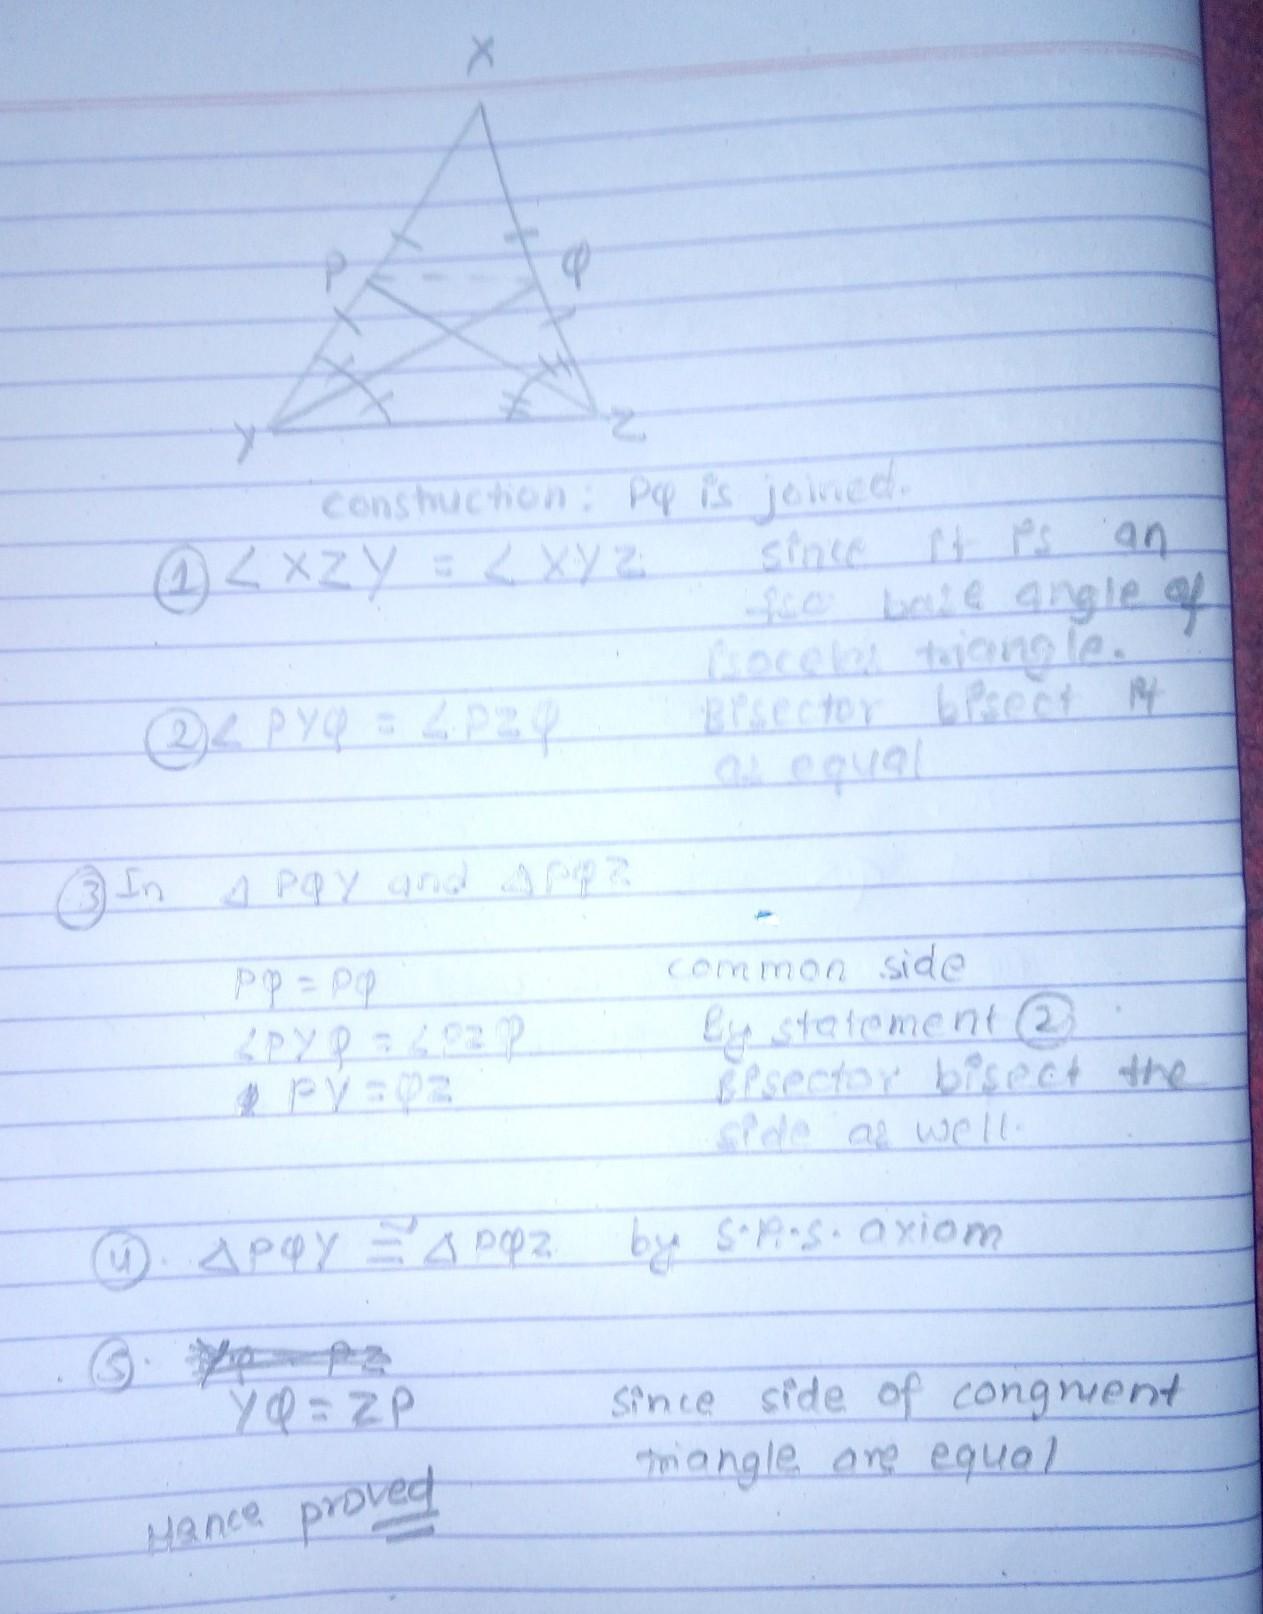 X
P
Q
Y
Z
construction: PQ is joined.
① ∠XZY = ∠XYZ since it is an
base angle of
isoceles triangle.
② ∠PYQ = ∠PZQ Bisector bisect it
as equal
③ In Δ PQY and ΔPQZ
PQ = PQ common side
∠PYQ = ∠PZQ By statement ②
PY = QZ Bisector bisect the
side as well.
④. ΔPQY ≅ ΔPQZ by S.A.S. axiom
⑤.
YQ = ZP since side of congruent
triangle are equal
Hence proved